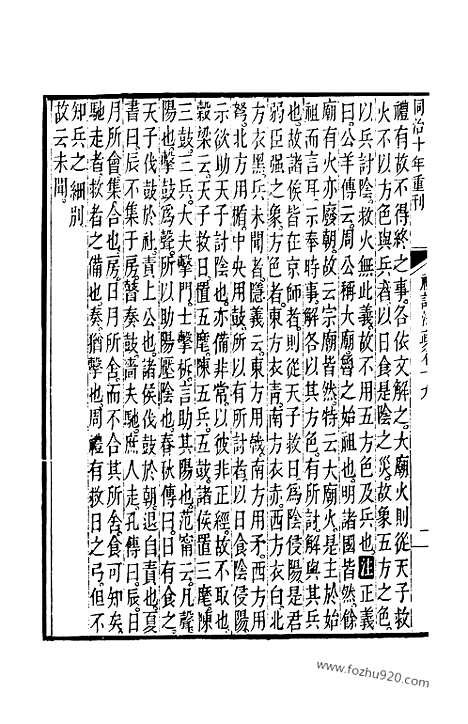 同治十年重刊
禮有故不得終之事各依文解之大廟火則從天子救
火不以方色與兵者以日食是陰之災故象五方之色
以兵討陰救火無此義故不用五方色及兵也注正義
曰公羊傳云周公稱大廟魯之始祖也明諸國皆然餘
廟有火亦廢朝故云宗廟皆然特云大廟火是主於始
祖而言耳示奉時事解各以其方色有所討解與其兵
也故諸侯皆在京師者則從天子救日為陰侵陽是君
弱臣强之象方色者東方衣青南方衣赤西方衣白北
方衣黑兵未聞者隱義云東方用戟南方用矛西方用
弩北方用楯中央用鼓所以有所討者以日食陰侵陽
示欲助天子討陰也亦備非常以彼非正經故不取也
穀梁云天子救日置五麾陳五兵五鼓諸侯置三麾陳
三鼓三兵大夫擊門士擊柝言助其陽也范甯云凡聲
陽也擊鼓為聲所以助陽壓陰也春秋傳曰日有食之
天子伐鼓於社責上公也諸侯伐鼓於朝退自責也夏
書曰辰不集于房瞽奏鼓嗇夫馳庶人走孔傳曰辰日
月所會集合也房日月所舍而不合其所舍食可知矣
馳走者救者之備也奏猶擊也周禮有救日之弓但不
知兵之細別
故云未聞
www.fozhu920.com